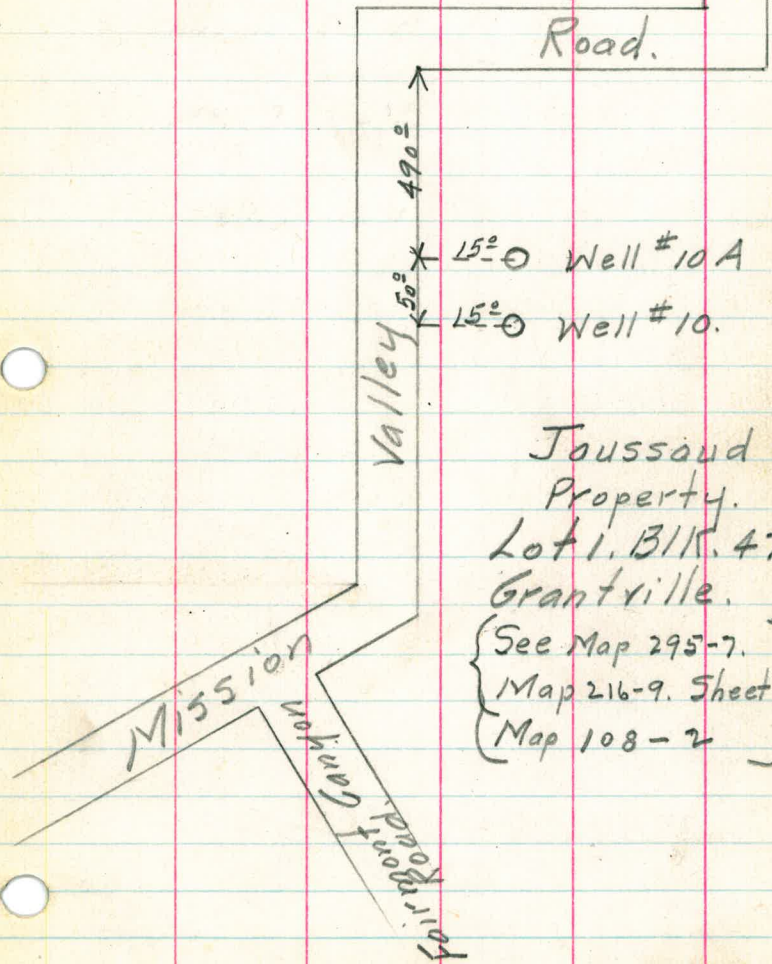 Road.
490º
15º Well #10 A
50º
15º Well #10.
Valley
Joussaud
Property.
Lot 1. Blk. 4
Grantville.
See Map 295-7.
Map 216-9. Sheet
Map 108-2
Mission
Fairmount Canyon
Road.